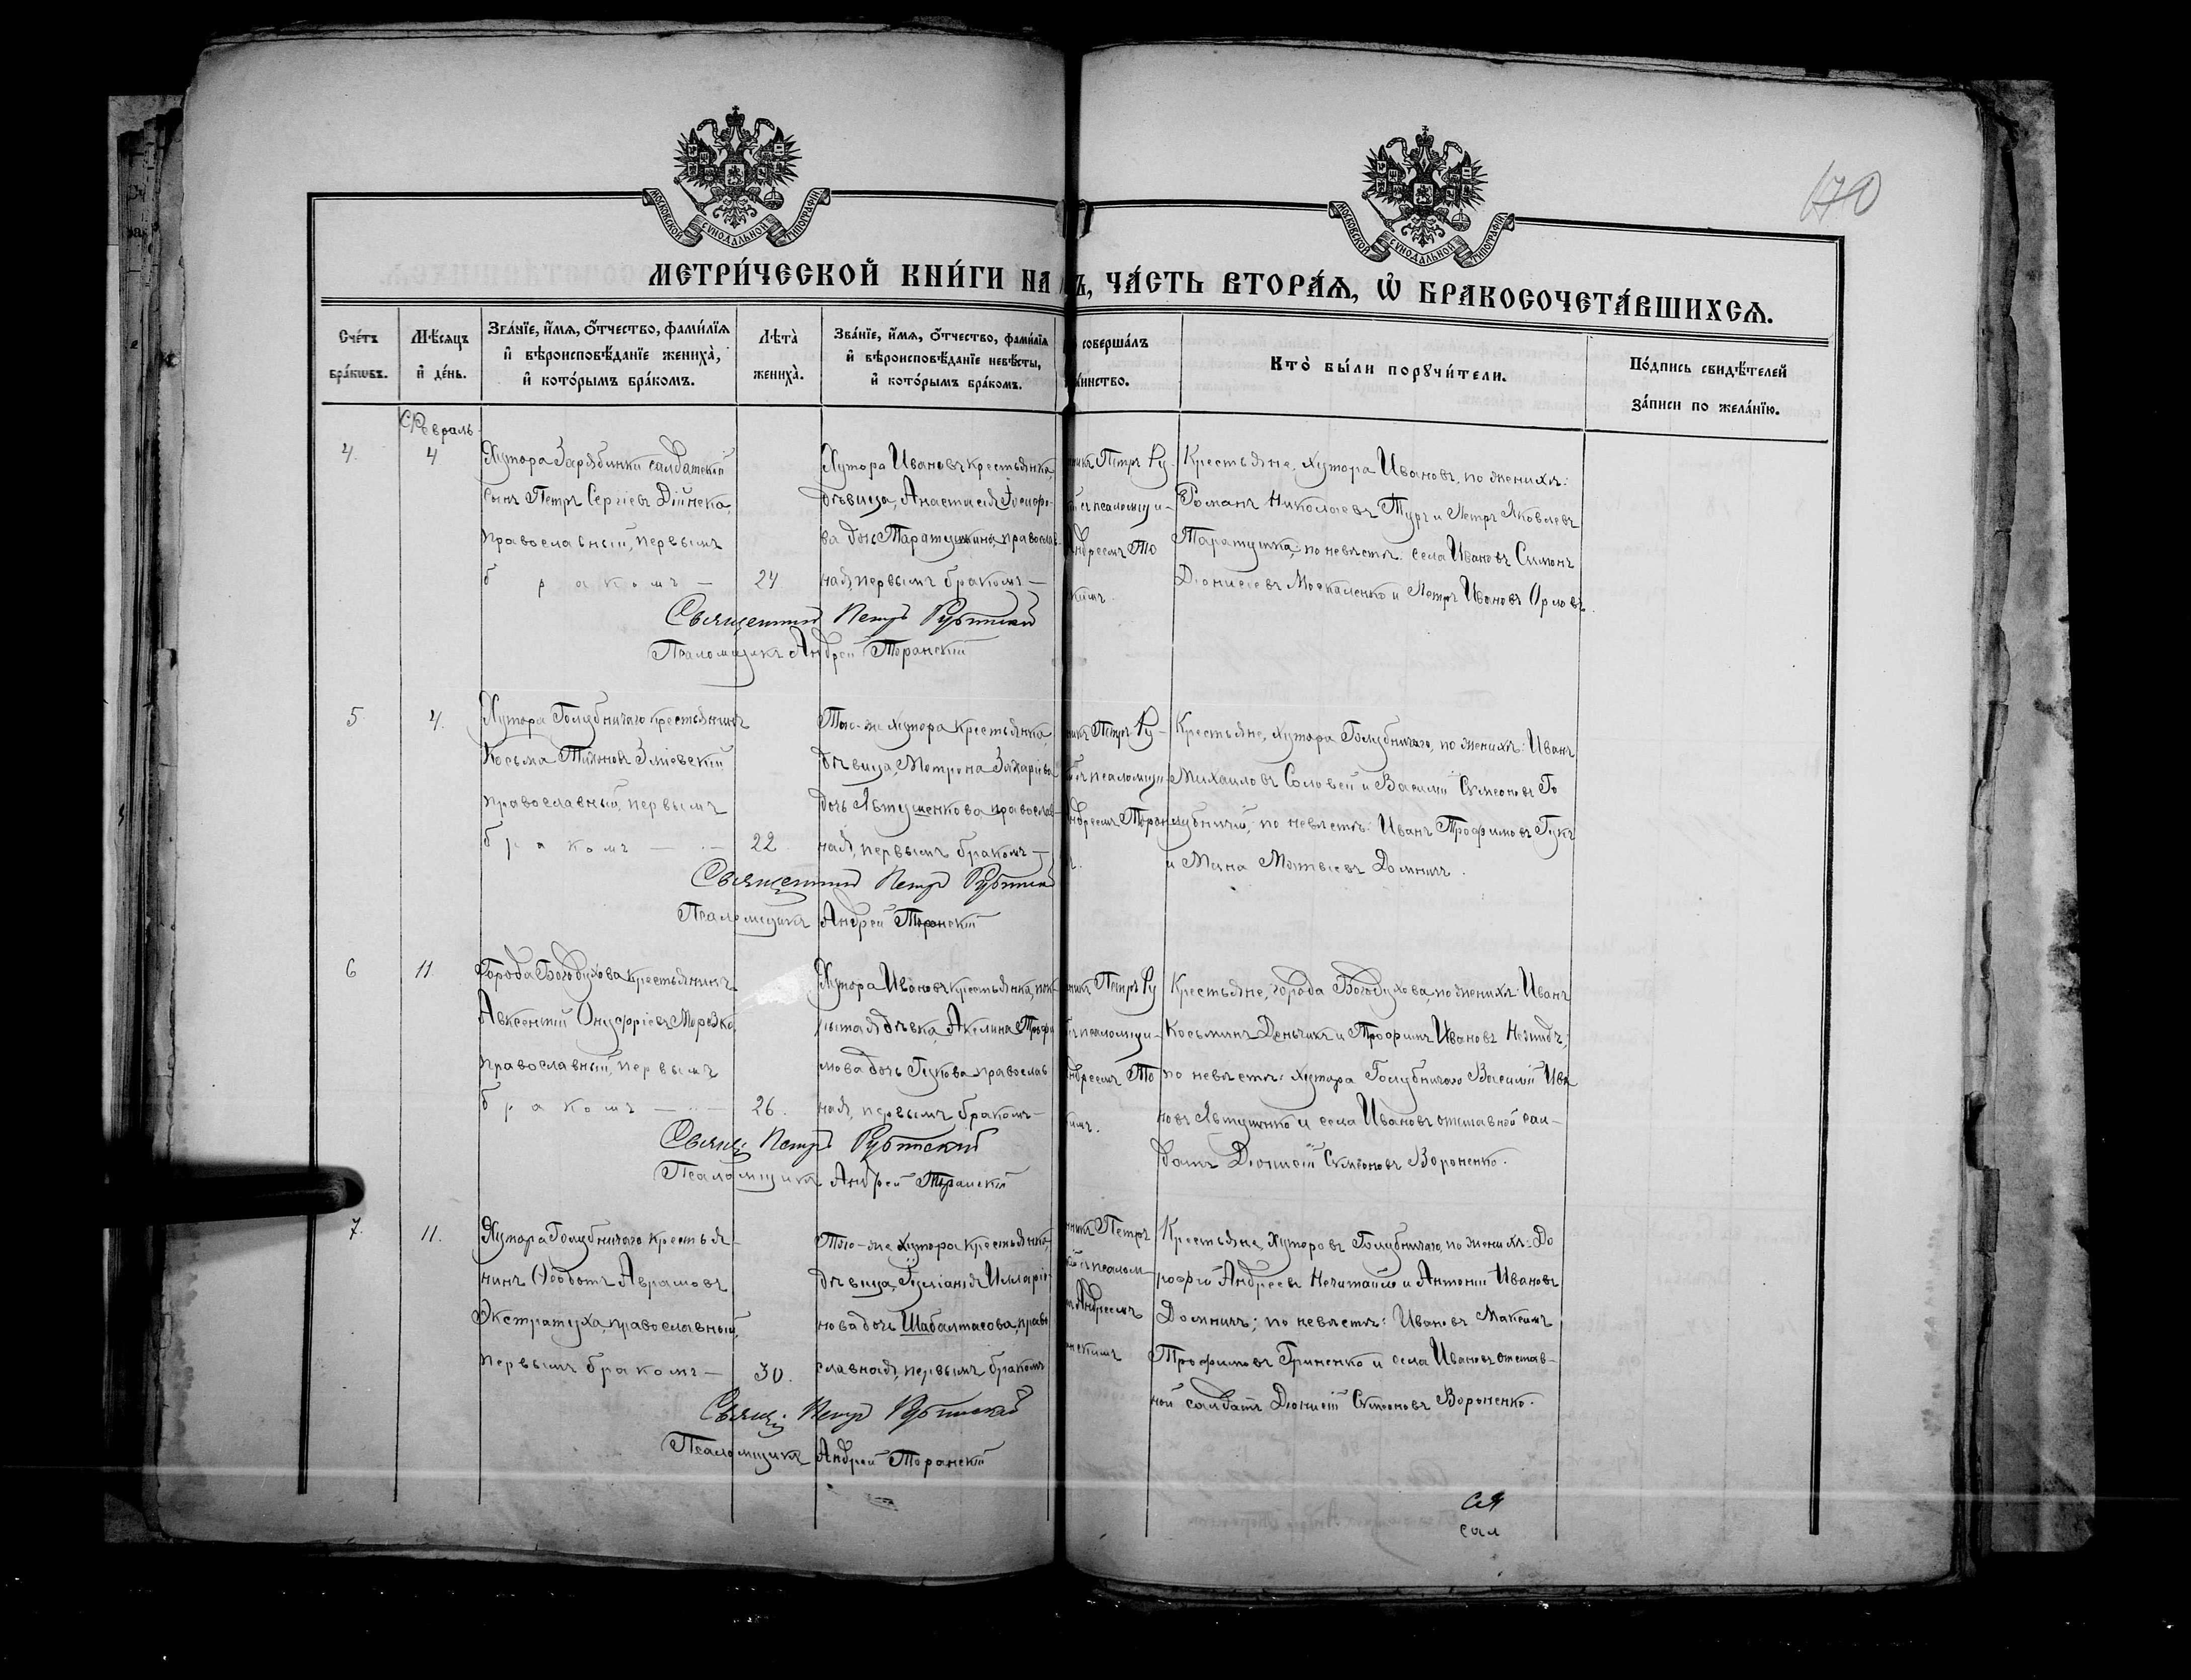 170
МОСКОВСКОЙ СѴНОДАЛЬНОЙ ТИПОГРАФІИ
МОСКОВСКОЙ СѴНОДАЛЬНОЙ ТИПОГРАФІИ
МЕТРИ́ЧЕСКОЙ КНИ́ГИ НА Ъ, ЧА́СТЬ ВТОРА́Ѧ, Ѡ҆ БРАКОСОЧЕТА́ВШИХСѦ.
Сче́тъ бра́кѡвъ.
Мѣ́сяцъ и҆ де́нь.
Зва́нїе, и҆́мѧ, ѻ҆́тчество, фами́лїѧ и҆ вѣроисповѣ́данїе жениха̀, и҆ кото́рымъ бра́комъ.
Лѣта̀ жениха̀.
Зва́нїе, и҆́мѧ, ѻ҆́тчество, фами́лїѧ и҆ вѣроисповѣ́данїе невѣ́сты, и҆ кото́рымъ бра́комъ.
соверша́лъ
инство.
Кто̀ бы́ли порꙋчи́тели.
По́дпись свидѣ́телей за́писи по жела́нїю.
Февраль
4.
4
Хутора Зарябинки салдатскій
сынъ Петръ Сергіевъ Дѣйнека,
православный, первымъ
бракомъ —
24
Хутора Ивановъ крестьянка,
дѣвица, Анастасія
ва дочь Таратушкина, православ-
ная, первымъ бракомъ —
никъ Петръ Ру-
псаломщи-
Андреемъ То
кимъ.
Крестьяне, хутора Ивановъ, по женихѣ:
Романъ Николаевъ Туръ и Петръ Яковлевъ
Таратушка, по невѣстѣ: села Ивановъ Симонъ
Діонисіевъ Москаленко и Петръ Ивановъ Орловъ.
Священникъ Петръ Рубинскій
Псаломщикъ Андрей Торанскій
5
4.
Хутора Голубничаго крестьянинъ
Косьма Зміевскій
православный, первымъ
бракомъ — —
22
Того-же хутора крестьянка,
дѣвица, Мотрона Захаріева
дочь Явтушенкова православ-
ная, первымъ бракомъ —
никъ Петръ Ру-
псаломщи-
Андреемъ Торан
Крестьяне, хутора Голубничаго, по женихѣ: Иванъ
Михаиловъ Соловей и Василій Симеоновъ Го
лубничій; по невѣстѣ: Иванъ Трофимовъ Гукъ
и Мина Матвѣевъ Домничъ.
Священникъ Петръ Рубинскій
Псаломщикъ Андрей Торанскій
6
11.
Города Богодухова крестьянинъ
Авксентій Онуфріевъ
православный, первымъ
бракомъ — —
26.
Хутора Ивановъ крестьянка, пок-
рытая дѣвка, Акилина Трофи
мова дочь Гукова православ
ная, первымъ бракомъ —
никъ Петръ Ру
псаломщи-
Андреемъ То
кимъ.
Крестьяне, города Богодухова, по женихѣ: Иванъ
Косьминъ Деньчикъ и Трофимъ Ивановъ
по невѣстѣ: хутора Голубничаго Василій Ива
новъ Явтушенко и села Ивановъ отставной сал-
датъ Діонисій Симеоновъ Вороненко.
Свящ: Петръ Рубинскій
Псаломщикъ Андрей Торанскій
7.
11.
Хутора Голубничаго крестья-
нинъ Ѳеодотъ Аврамовъ
Экстратуха, православный,
первымъ бракомъ —
30.
Того-же хутора крестьянка,
дѣвица, Іуліанія Илларіо-
нова дочь Шабалтасова, право
славная, первымъ бракомъ
нникъ Петръ
псалом-
Андреемъ
нскимъ
Крестьяне, хуторовъ Голубничаго, по женихѣ: До
рофей Андреевъ Нечитайло и Антоній Ивановъ
Домничъ; по невѣстѣ: Ивановъ Максимъ
Трофимовъ Гриненко и села Ивановъ отстав-
ной салдатъ Діонисій Симеоновъ Вороненко.
Свящ: Петръ Рубинскій
Псаломщикъ Андрей Торанскій